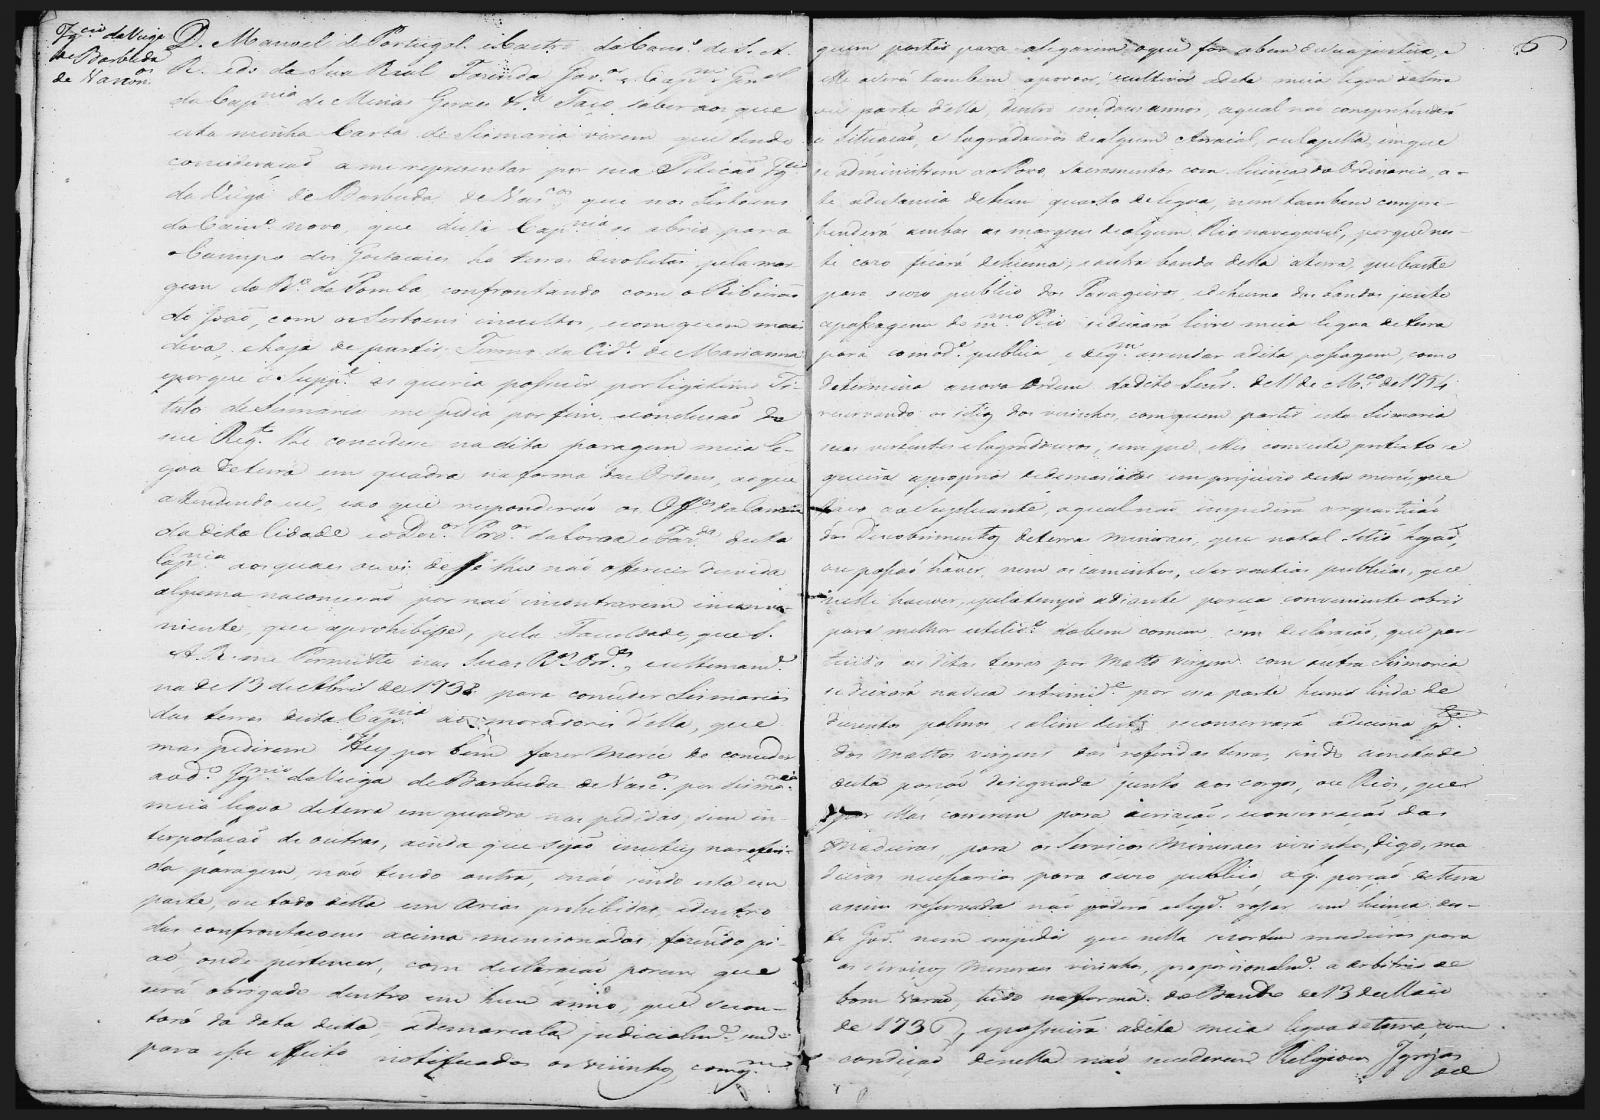 Ign.cio da Veiga
de Barbuda
de Vascon.os
D. Manoel de Portugal e Castro do Cons.o de S. A.
R. e do da Sua Real Fazenda Gov.or e Cap.m Gen.al
da Cap.nia de Minas Geraes &.a Faço saber aos que
esta minha Carta de Sismaria virem que tendo
consideração a me reprezentar por sua Petição Ign.cio
da Veiga de Barbuda de Vas.cos, que nos Sertoens
do Cam.o novo, que desta Cap.nia se abrio para
o Campo dos Goitacazes ha terras devolutas pela mar
gem do R.o da Pomba, confrontando com o Ribeirão
de João, com os Sertoens incultos, e com quem mais
deva, e haja de partir Termo da Cid.e de Marianna
e porque o Supp.e as queria possuir por legitimo Ti-
tulo de Sismaria me pedia por fim, e concluzão de
seu Req.to lhe concedesse na dita paragem meia le-
goa de terra em quadra na forma das Ordens, ao que
attendendo eu, e ao que responderão os Off.es da Camara
da dita Cidade e o Dr. Pro.or da Coroa e Faz.da desta
Cap.nia aos quaes ouvi de se lhes não offerecer duvida
alguma na concessão por não encontrarem inconve-
niente, que a prohibisse, pela Faculdade, que S.
A. R. me Permitte nas Suas R.s Ord.es, e ultimam.e
na de 13 de Abril de 1738 para conceder Sismarias
das terras desta Cap.nia aos moradores d'ella, que
mas pedirem Hey por bem fazer mercê de conceder
ao d.o Ign.cio da Veiga de Barbuda de Vasc.os por Sism.a
meia legoa de terra em quadra nas pedidas, sem in-
terpolação de outras, ainda que sejão inuteis na referi-
da paragem, não tendo outra, e não sendo esta em
parte, ou todo della em Arias prohibidas, e dentro
das confrontaçoens acima mencionadas, fazendo pi-
ão, onde pertencer, com declaração porem que
será obrigado dentro em hum anno, que se con-
tará da data desta, a demarcala judicialm.e sendo
para esse effeito notificados os vizinhos, com q.m
6
quem partir para alegarem o que for a bem de sua justiça, e
elle o será tambem a povoar, e cultivar a dita meia legoa de terra
ou parte d'ella, dentro em dous annos, a qual não comprehenderá
a situação, e logradouros de algum Arraial, ou Capella, em que
se administrem ao Povo, Sacramentos com licença do Ordinario, a-
té a distancia de hum quarto de legoa, nem tambem compre-
henderá ambas as margens de algum Rio navegavel, porque nes-
te cazo ficará de huma, e outra banda della a terra, que baste
para o uzo publico dos Passageiros, e de huma das bandas, junto
a passagem do m.mo Rio se deixará livre meia legoa de terra
para comod.e publica, e de q.m arrendar a dita passagem, como
determina a nova Ordem do dito Senr. de 11 de M.ço de 1754
rezervando os sitios dos vizinhos, com quem partir esta Sismaria
suas vertentes e logradouros, sem que elles com este pretexto se
queirão apropriar de demaziadas em prejuizo desta mercê, que
faço ao Suplicante, o qual não impedirá a repartição
dos Descobrimentos de terras mineraes, que no tal sitio hajão,
ou possão haver, nem os caminhos, e serventias publicas, que
nelle houver, e pelo tempo adiante pareça conveniente abrir
para melhor utilid.e do bem comum, com declaração, que par-
tindo as ditas terras por Matto virgem com outra Sismaria
se deixará na sua extremid.e por essa parte huma linda de
duzentos palmos, e alem disto se conservará a decima p.te
dos mattos virgens das referidas terras, sendo ametade
desta porção designada junto aos corgos, ou Rios, que
por ellas correrem para creação, e conservação das
madeiras, para os Serviços Mineraes vizinhos, digo, ma
deiras necessarias para o uzo publico, a q.l porção de terra
assim rezervada não poderá o Sup.e rossar sem licença des-
te Gov.o nem impedir que nella se cortem madeiras para
os serviços Mineraes vizinhos, proporcionalm.e a arbitrio de
bom varão, tudo na forma do Bando de 13 de Maio
de 1736, e possuirá a dita meia legoa de terra, com
condição de nella não sucederem Religioens Igrejas
ou